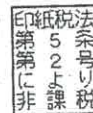 印紙税法
第5条
第2号
により
非課税